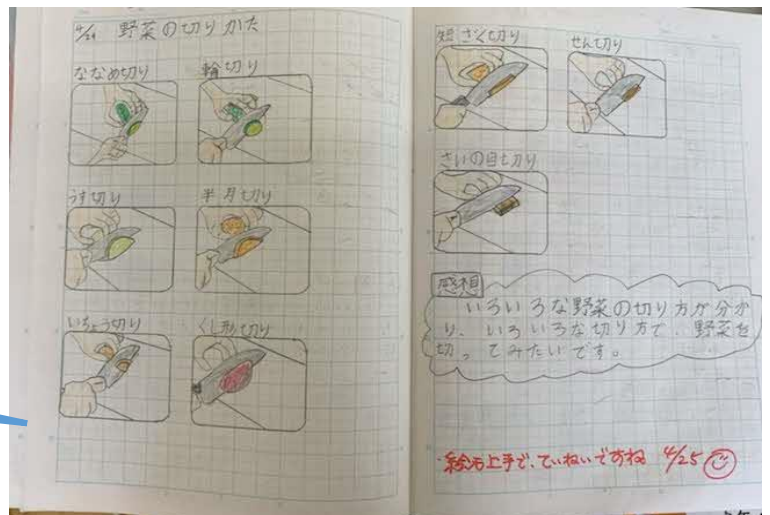 4/24 野菜の切りかた
ななめ切り 輪切り
うす切り 半月切り
いちょう切り くし形切り
短ざく切り せん切り
さいの目切り
感想
いろいろな野菜の切り方が分か
り、いろいろな切り方で、野菜を
切ってみたいです。
絵も上手で、ていねいですね 4/25